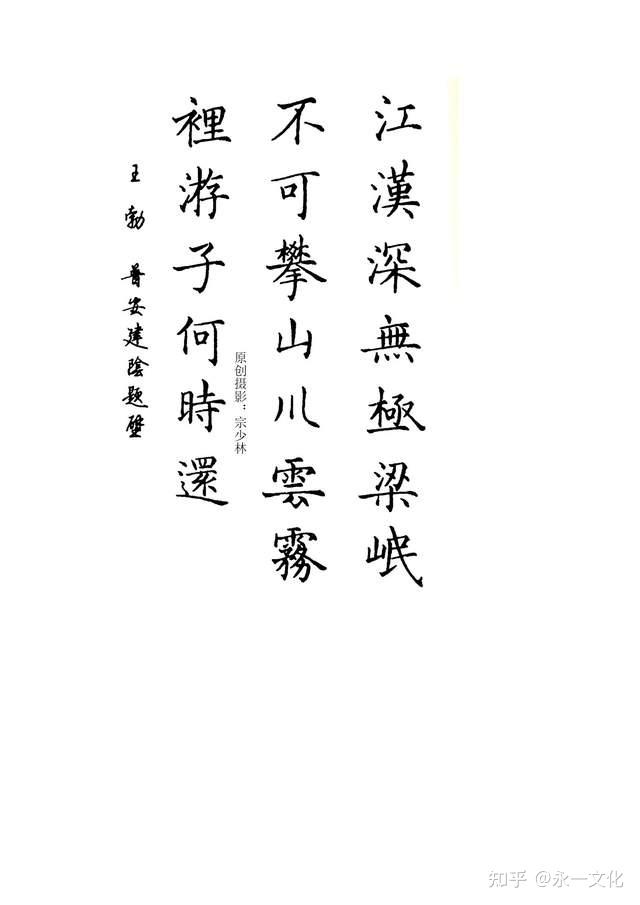 江漢深無極梁岷
不可攀山川雲霧
裡游子何時還
王勃 普安建陰題壁
原创摄影：宗少林
知乎 @永一文化